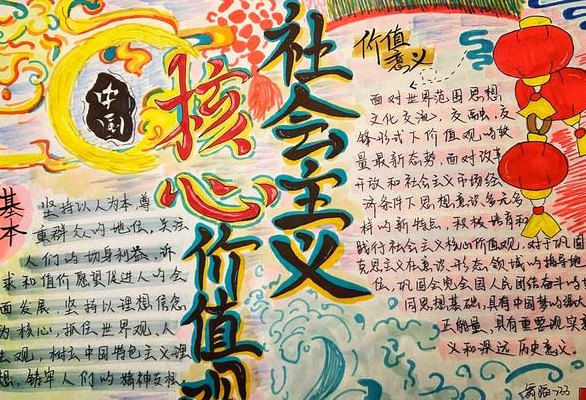 社会主义
核心价值观
中国
价值
意义
面对世界范围思想
文化交流、交融、交
锋形式下价值观的较
量最新态势,面对改革
开放和社会主义市场经
济条件下思想意识多元多
样的新特点,积极培育和
践行社会主义核心价值观,对于巩固
克思主义在意识形态领域的指导地
位,巩固全党全国人民团结奋斗的
同思想基础,具有中国梦的强
正能量,具有重要现实意
义和深远历史意义。
基
本
坚持以人为本尊
重群众的地位,关注
人们的切身利益,诉
求和值价愿望促进人的全
面发展,坚持以理想信念
为核心,抓住世界观、人
生观,树立中国特色主义理
想,铸牢人们的精神支柱